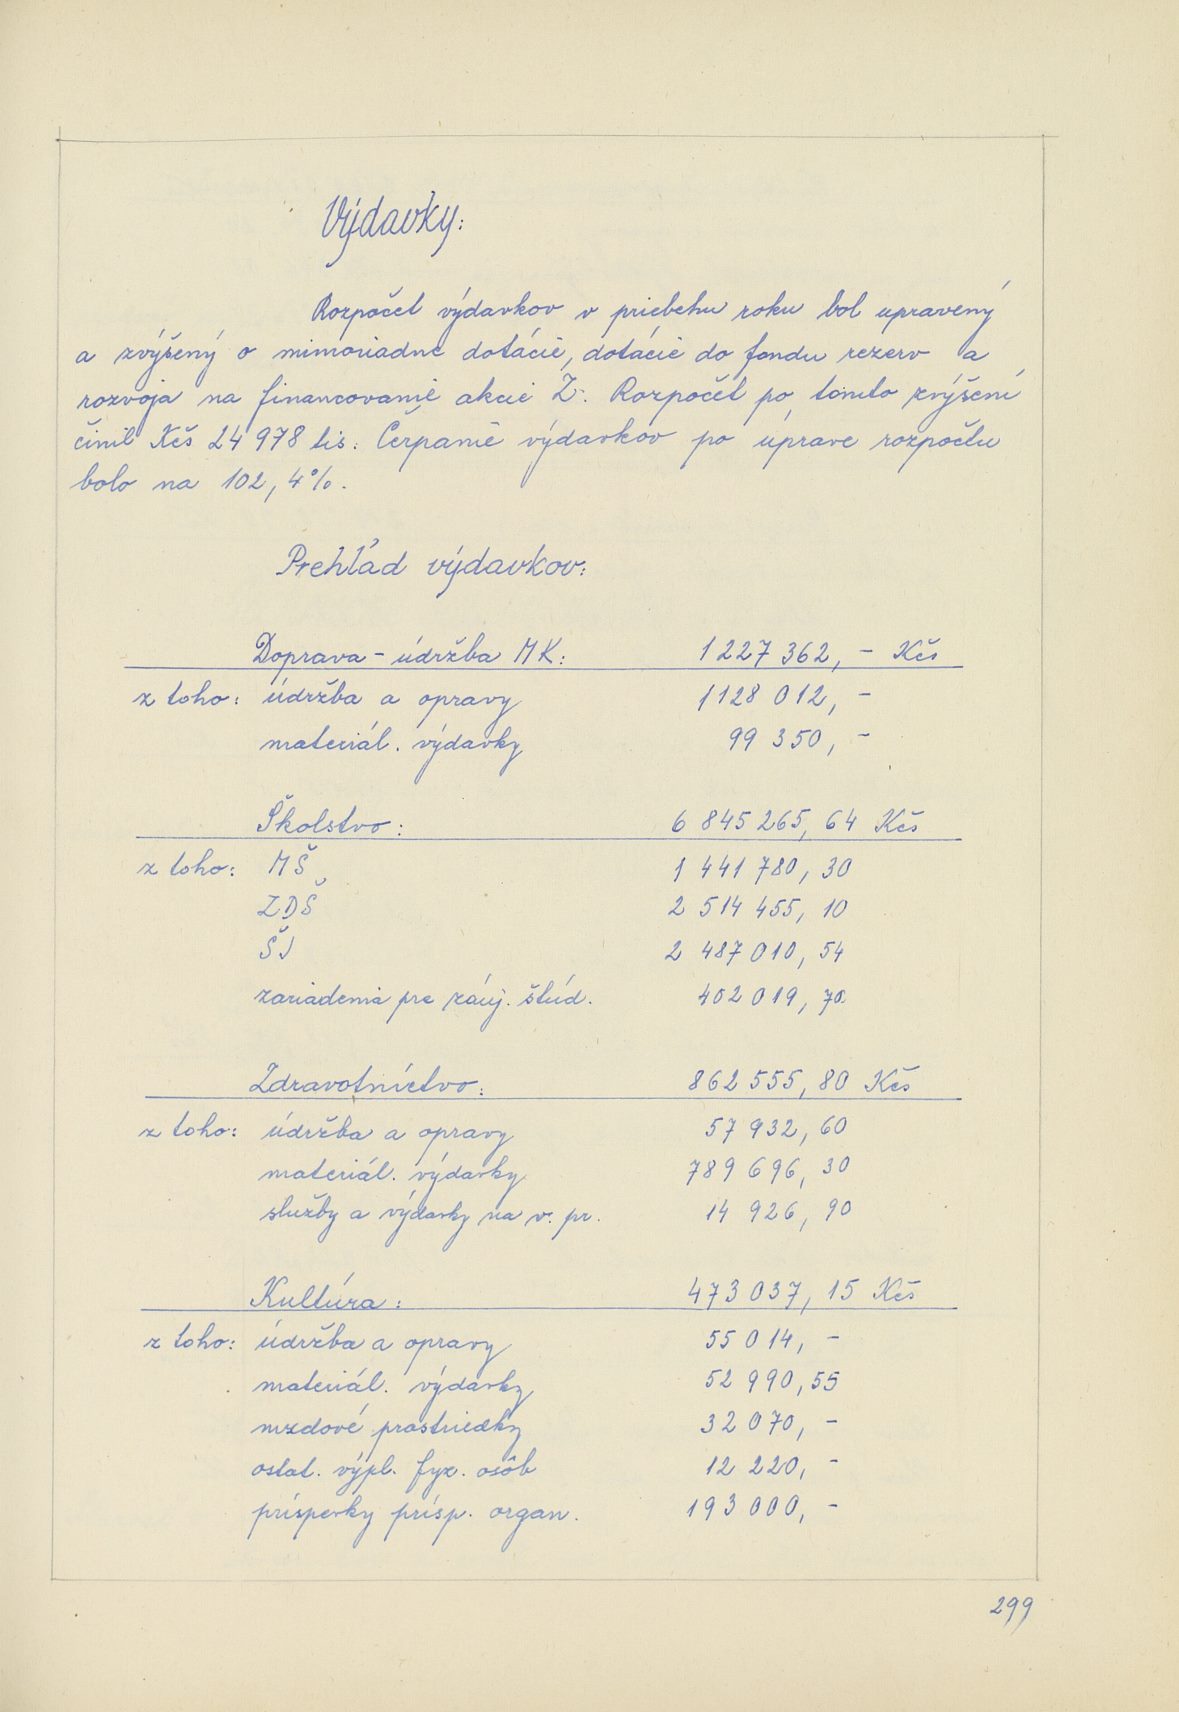 Výdavky:
Rozpočet výdavkov v priebehu roku bol upravený
a zvýšený o mimoriadne dotácie, dotácie do fondu rezerv a
rozvoja na financovanie akcií Z. Rozpočet po tomto zvýšení
činil Kčs 24 978 tis. Čerpanie výdavkov po úprave rozpočtu
bolo na 102,4%.
Prehľad výdavkov:
Doprava - údržba MK: 1 227 362,- Kčs
z toho: údržba a opravy 1 128 012,-
materiál. výdavky 99 350,-
Školstvo: 6 845 265,64 Kčs
z toho: MŠ 1 441 780,30
ZDŠ 2 514 455,10
ŠJ 2 487 010,54
zariadenia pre záuj. štúd. 402 019,70
Zdravotníctvo: 862 555,80 Kčs
z toho: údržba a opravy 57 932,60
materiál. výdavky 789 696,30
služby a výdavky na v. pr. 14 926,90
Kultúra: 473 037,15 Kčs
z toho: údržba a opravy 55 014,-
materiál. výdavky 52 990,55
mzdové prostriedky 32 070,-
ostat. výpl. fyz. osôb 12 220,-
príspevky prísp. organ. 193 000,-
299